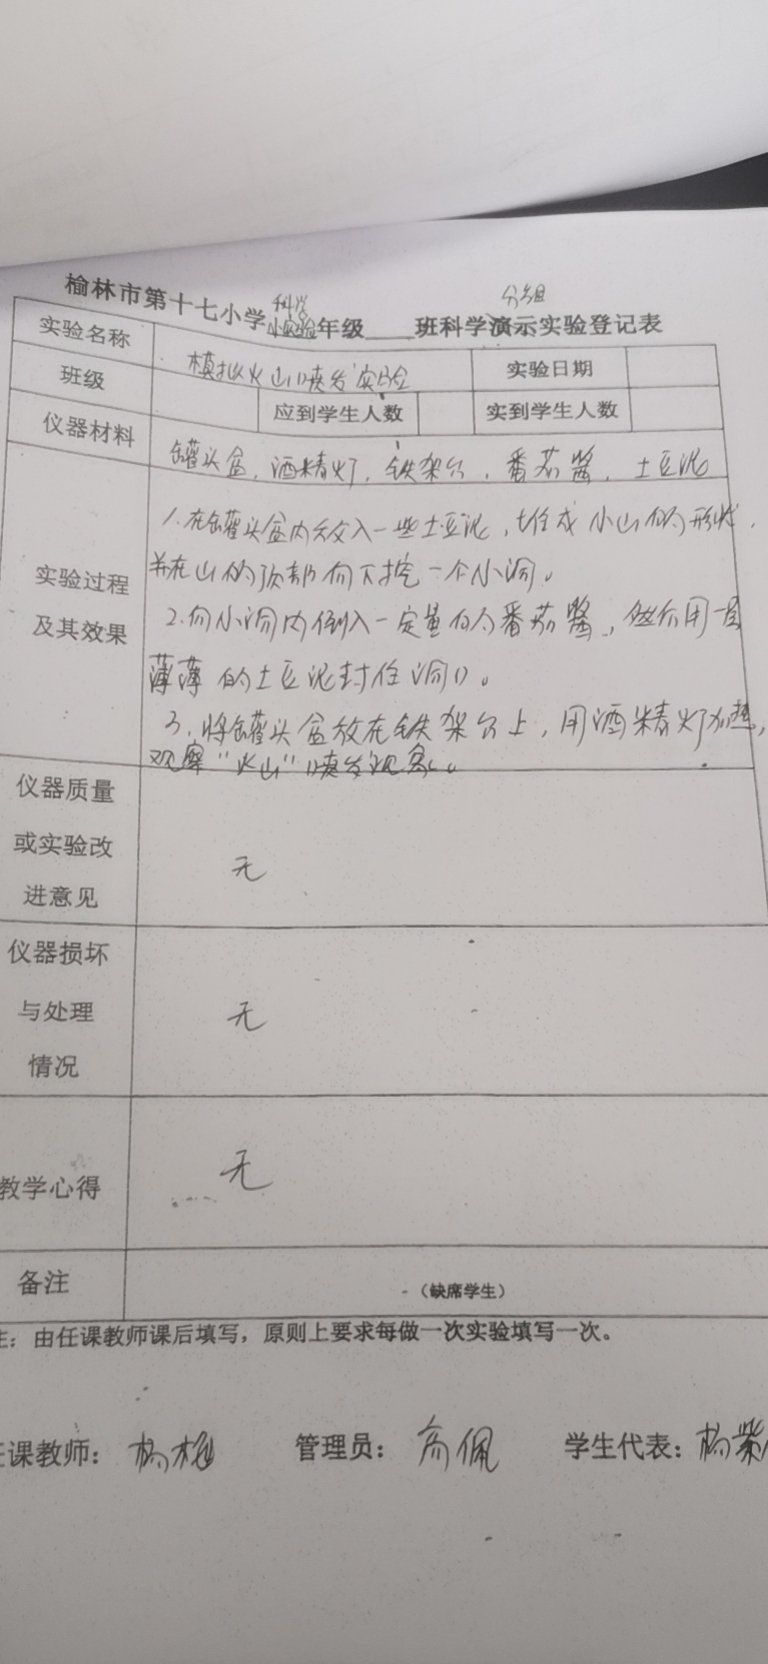 科学 分组
榆林市第十七小学小实验年级____班科学演示实验登记表
实验名称 模拟火山喷发实验 实验日期
班级 应到学生人数 实到学生人数
仪器材料 罐头盒,酒精灯,铁架台,番茄酱,土豆泥
1.在罐头盒内放入一些土豆泥,堆成小山的形状,
并在山的顶部向下挖一个小洞。
实验过程
及其效果
2.向小洞内倒入一定量的番茄酱,然后用一层
薄薄的土豆泥封住洞口。
3.将罐头盒放在铁架台上,用酒精灯加热,
观察“火山”喷发现象。
仪器质量
或实验改
进意见
无
仪器损坏
与处理
情况
无
教学心得 无
备注 (缺席学生)
注:由任课教师课后填写,原则上要求每做一次实验填写一次。
任课教师:杨 管理员:高佩 学生代表:杨紫